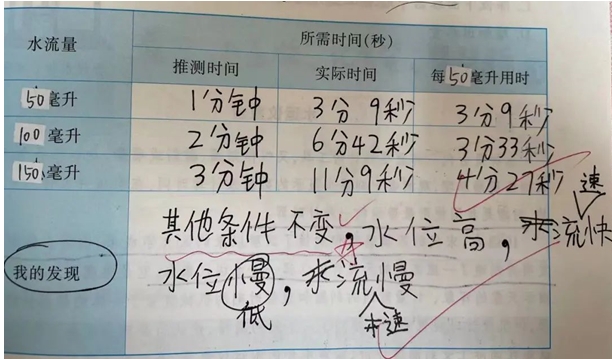 水流量 所需时间(秒)
推测时间 实际时间 每50毫升用时
50毫升 1分钟 3分9秒 3分9秒
100毫升 2分钟 6分42秒 3分33秒
150毫升 3分钟 11分9秒 4分27秒
速
其他条件不变，水位高，水流快
我的发现 水位慢，水流慢
低 速